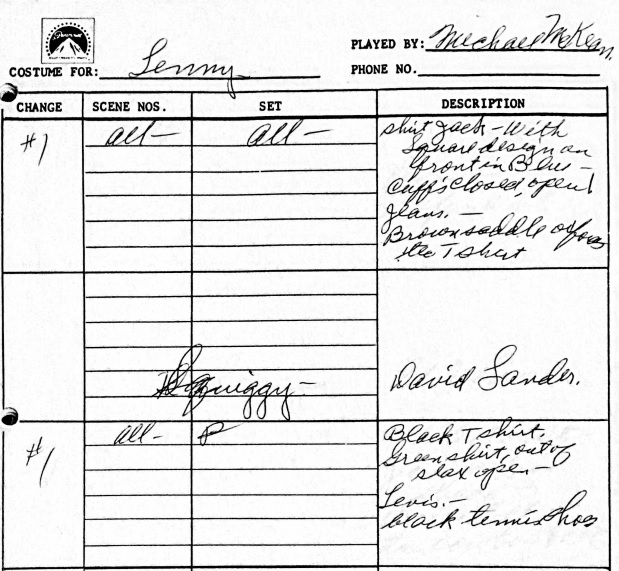 Paramount
PLAYED BY: Michael McKean
COSTUME FOR: Lenny
PHONE NO.
CHANGE SCENE NOS. SET DESCRIPTION
#1 all— all— shirt jack—With
Square design on
front in Blue—
Cuffs closed, open
Jeans.—
Brown saddle
T shirt
Squiggy— David Lander.
#1 all— P Black T shirt.
Green shirt, out of
slax open—
Levis.—
black tennis shoes